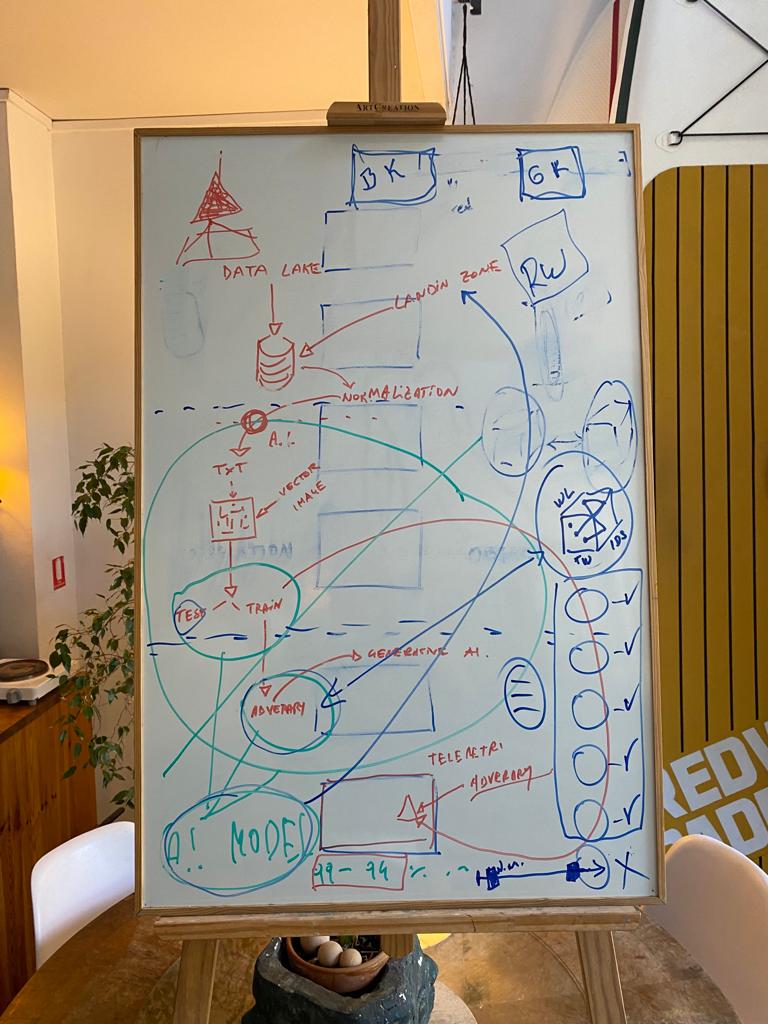 ARTCREATION
BK
GK
RW
DATA LAKE
LANDIN ZONE
NORMALIZATION
A.I.
TXT
VECTOR
IMAGE
WL
IDS
TW
TEST
TRAIN
GENERATIVE AI.
ADVERARY
TELEMETRI
ADVERARY
A.I MODEL
99-94 %
X
REDW